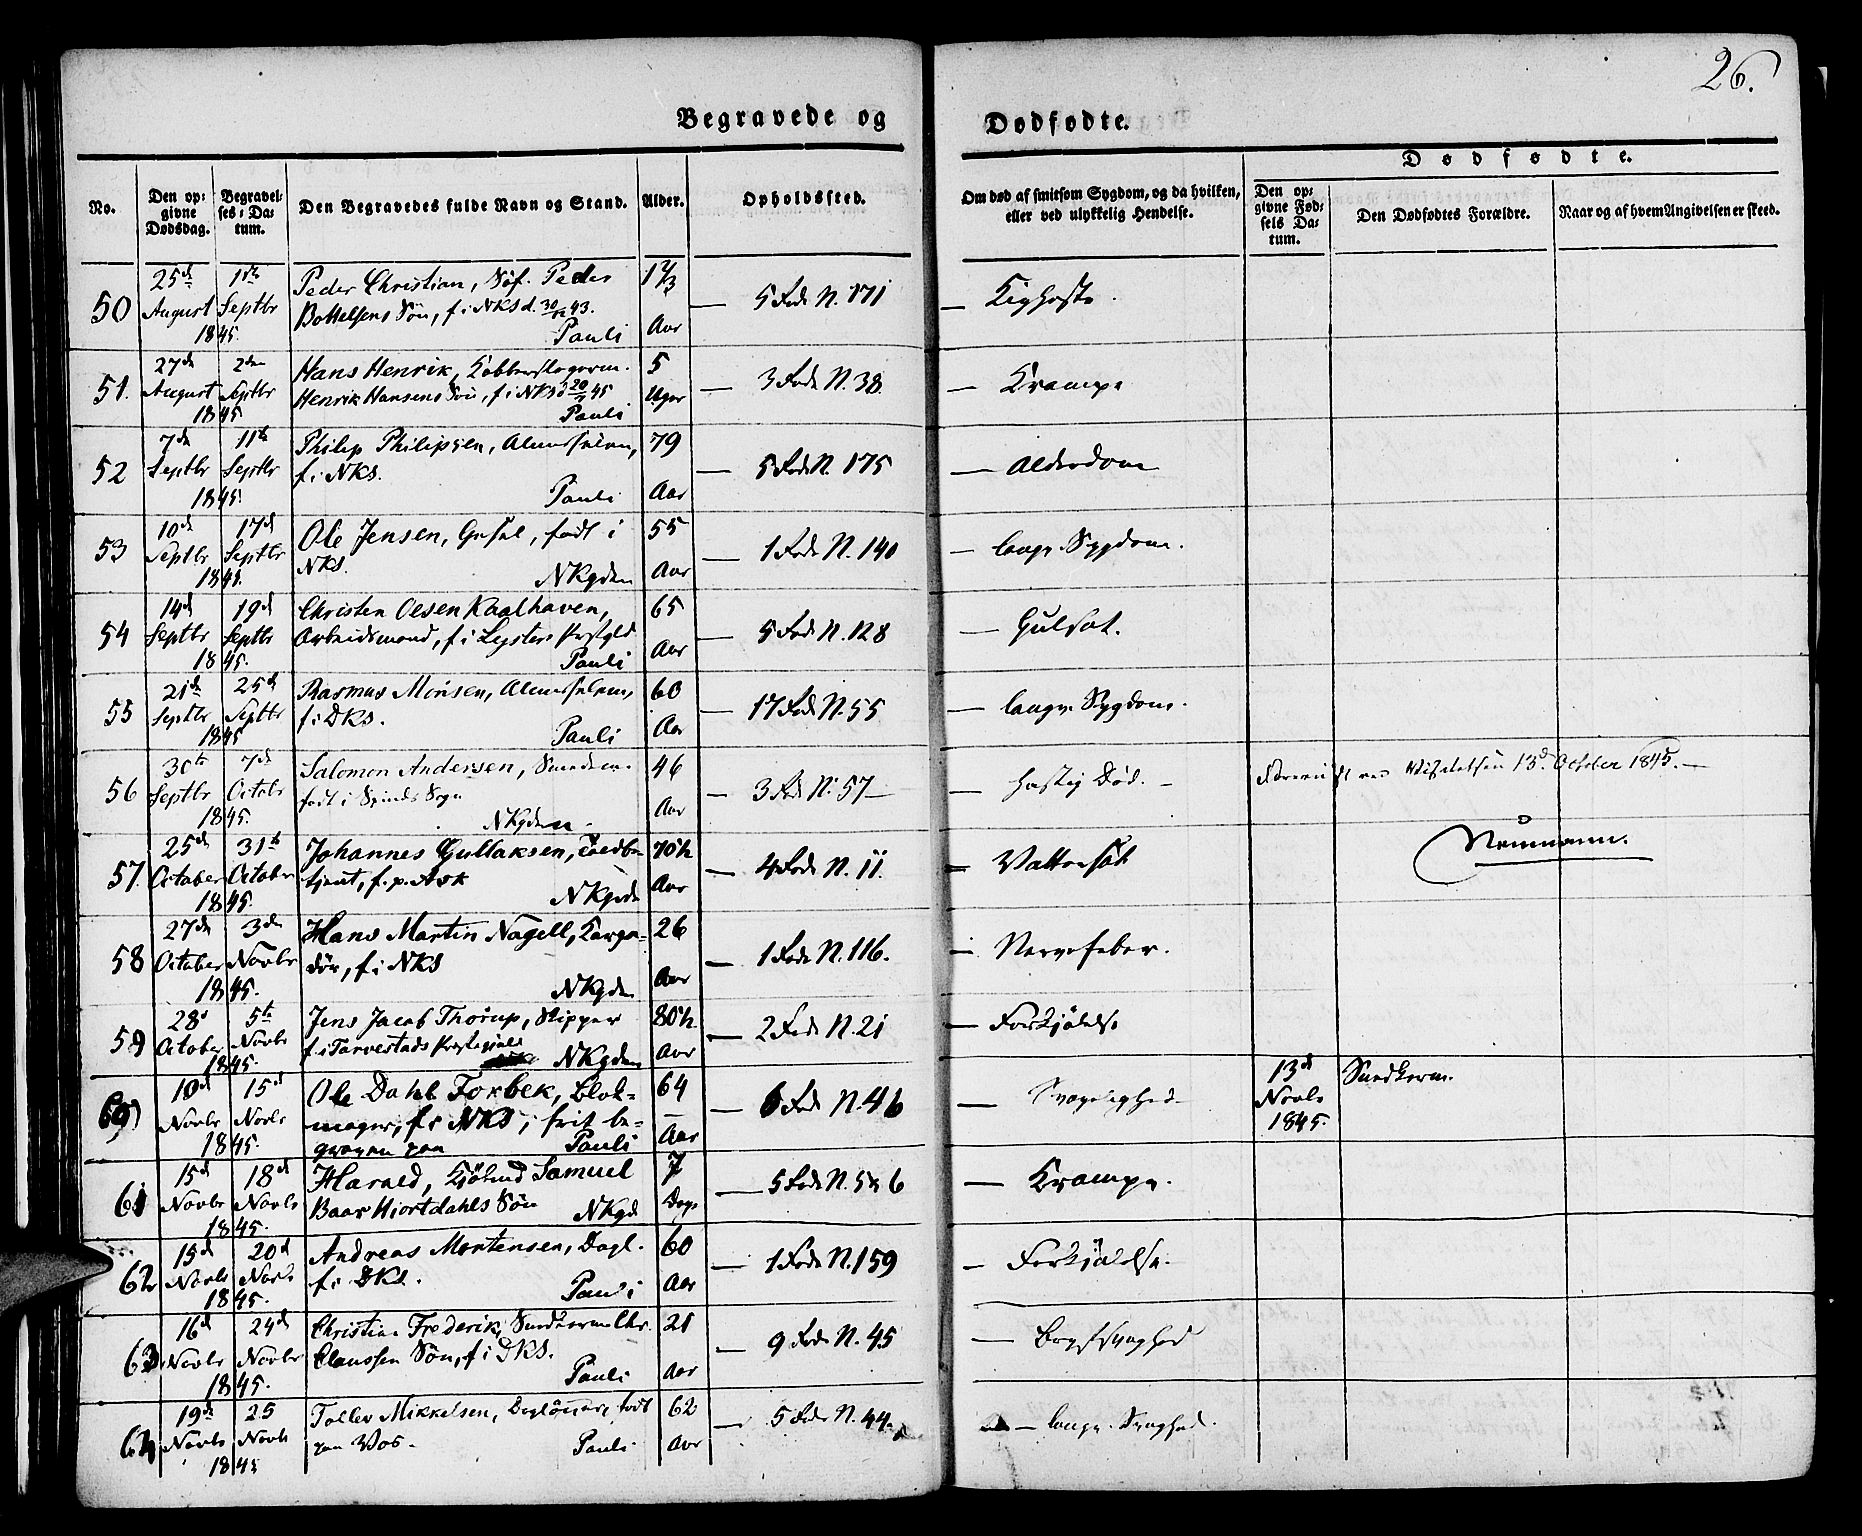 26.
Begravede og Dødfødte.
No.
Den opgivne Dødsdag.
Begravelses-Datum.
Den Begravedes fulde Navn og Stand.
Alder.
Opholdssted.
Om død af smitsom Sygdom, og da hvilken, eller ved ulykkelig Hendelse.
Dødfødte.
Den opgivne Fødsels Datum.
Den Dødfødtes Forældre.
Naar og af hvem Angivelsen er skeed.
50 25de August 1ste Septbr 1845 Peder Christian, Peder
Søn, f. i NKS d. 30/12 43. Pauli
1 2/3 Aar — 5 Rode N. 171 — Kighoste.
51. 27de August 2den Septbr 1845 Hans Henrik,
Henrik Hansens Søn, f i NKS 45 Pauli
5 Uger — 3 Rode N. 38. — Krampe
52 7de Septbr 11te Septbr 1845. Philip Philipsen,
f. i NKS. Pauli
79 Aar — 5 Rode N. 175 — Alderdom
53 10de Septbr 17de Septbr 1845. Ole Jensen, født i
NKS. NKgden
55 Aar — 1 Rode N. 140 — langv. Sygdom.
54 14d Septbr 19d Septbr 1845. Christen Olsen Kaalhaven,
Arbeidsmand, f. i Lysters Pauli
65 Aar — 5 Rode N. 128 — Gulsot.
55 21de Septbr 25d Septbr 1845 Rasmus Monsen,
f. i DKS. Pauli
60 Aar — 17 Rode N. 55 — langv. Sygdom.
56 30te Septbr 7d Octobr 1845. Salomon Andersen,
født i Sogn NKgden.
46 Aar — 3 Rode N. 57 — hastig Død. — 13d. October 1845. —
Neumann.
57. 25de October 31te October 1845. Johannes Gullaksen,
f. p. Ask NKgden
70 Aar — 4 Rode N. 11. — Vattersot
58 27de October 3den Novbr 1845. Hans Martin Nagell,
f. i NKS NKgden
26 Aar — 1 Rode N. 116. — Nervefeber.
59 28d October 5te Novbr 1845. Jens Jacob Thorup, Skipper
f. i NKgden
80 Aar — 2 Rode N. 21 — Forkjølelse
60 10d Novbr 15d Novbr 1845. Ole Dahl Forbek, Blokmager, f. i NKS, frit begraven paa Pauli
64 Aar — 6 Rode N. 46 — Svagelighed. 13d Novbr 1845.
61 15d Novbr 18d Novbr 1845. Harald, Kjøbmd Samuel
Baar Hjortdahls Søn NKgd
7 Dage — 5 Rode N. 5 & 6 — Krampe.
62 15d Novbr 20d Novbr 1845. Andreas Mortensen, Dagl.
f. i DKS. Pauli
60 Aar — 1 Rode N. 159 — Forkjølelse.
63. 16d Novbr 24d Novbr 1845. Christian Frederik, Chr.
Claussen Søn, f. i DKS. Pauli
21 Aar — 9 Rode N. 45 —
64 19de Novbr 25 Novbr 1845 Tollev Mikkelsen, Daglønner, født
paa Vos. Pauli
62 Aar — 5 Rode N. 44. — langv. Svaghed.